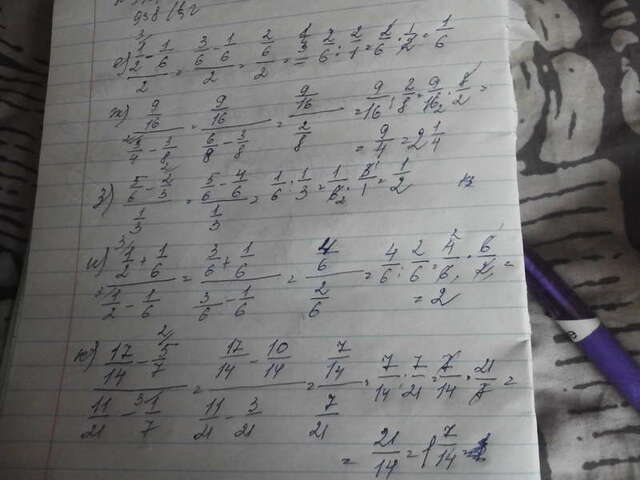 938 (
е) (1/2 - 1/6)/2 = (3/6 - 1/6)/2 = (2/6)/2 = 2/6 : 2/1 = 2/6 · 1/2 = 1/6
ж) (9/16)/(1/4 - 1/8) = (9/16)/(6/8 - 3/8) = (9/16)/(2/8) = 9/16 : 2/8 = 9/16 · 8/2 =
= 9/4 = 2 1/4
з) (5/6 - 2/3)/(1/3) = (5/6 - 4/6)/(1/3) = 1/6 : 1/3 = 1/6 · 3/1 = 1/2
и) (1/2 + 1/6)/(1/2 - 1/6) = (3/6 + 1/6)/(3/6 - 1/6) = (4/6)/(2/6) = 4/6 : 2/6 = 4/6 · 6/2 =
= 2
к) (17/14 - 5/7)/(11/21 - 1/7) = (17/14 - 10/14)/(11/21 - 3/21) = (7/14)/(7/21) = 7/14 : 7/21 = 7/14 · 21/7 =
= 21/14 = 1 7/14 =